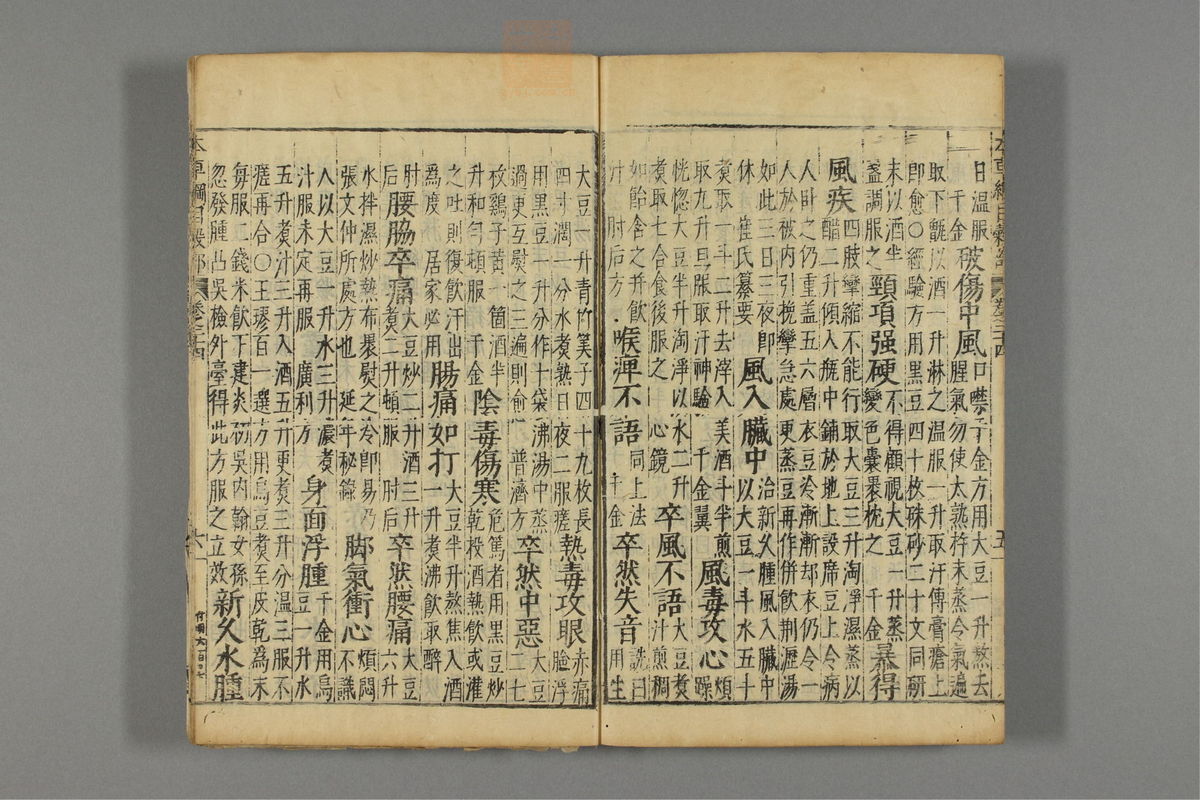 日温服
千金破傷中風口噤千金方用大豆一升熬去
腥氣勿使太熟杵末蒸令氣遍
取下甑以酒一升淋之温服一升取汗傅膏瘡上
即愈○經驗方用黑豆四十枚硃砂二十文同研
末以酒半
盞調服之頸項强硬不得顧視大豆一升蒸
變色囊裹枕之千金暴得
風疾四肢攣縮不能行取大豆三升淘淨濕蒸以
醋二升傾入瓶中鋪於地上設席豆上令病
人臥之仍重蓋五六層衣豆冷漸漸却衣仍令一
人於被内引挽攣急處更蒸豆再作併飲荆瀝湯
如此三日三夜即
休崔氏纂要風入臟中治新久腫風入臟中
以大豆一斗水五斗
煮取一斗二升去滓入美酒斗半煎
取九升旦服取汗神驗千金翼風毒攻心煩
躁
恍惚大豆半升淘淨以水二升
煮取七合食後服之心鏡卒風不語大豆煮
汁煎稠
如飴含之并飲
汁肘后方喉痺不語同上法
千金卒然失音
用生
大豆一升青竹筭子四十九枚長
四寸濶一分水煮熟日夜二服瘥熱毒攻眼赤痛
臉浮
用黑豆一升分作十袋沸湯中蒸
過更互熨之三遍則愈普濟方卒然中惡大豆
二七
枚鷄子黄一箇酒半
升和勻頓服千金陰毒傷寒危篤者用黑豆炒
乾投酒熱飲或灌
之吐則復飲汗出
爲度居家必用腸痛如打大豆半升熬焦入酒
一升煮沸飲取醉
肘后腰脇卒痛大豆炒二升酒三升
煮二升頓服肘后卒然腰痛大豆
六升
水拌濕炒熱布裹熨之冷即易乃
張文仲所處方也延年秘錄脚氣衝心煩悶
不識
人以大豆一升水三升濃煮
汁服未定再服廣利方身面浮腫千金用烏
豆一升水
五升煮汁三升入酒五升更煮三升分温三服不
瘥再合○王璆百一選方用烏豆煮至皮乾爲末
每服二錢米飲下建炎初吳内翰女孫
忽發腫凸吳檢外臺得此方服之立效新久水腫